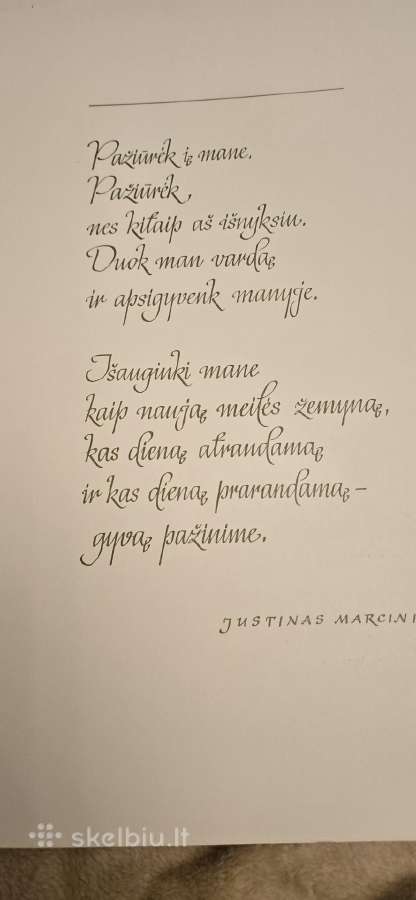 Pažiūrėk į mane.
Pažiūrėk,
nes kitaip aš išnyksiu.
Duok man vardą
ir apsigyvenk manyje.
Išauginki mane
kaip naują meilės žemyną,
kas dieną atrandamą
ir kas dieną prarandamą –
gyvą pažinime.
JUSTINAS MARCINI
skelbiu.lt